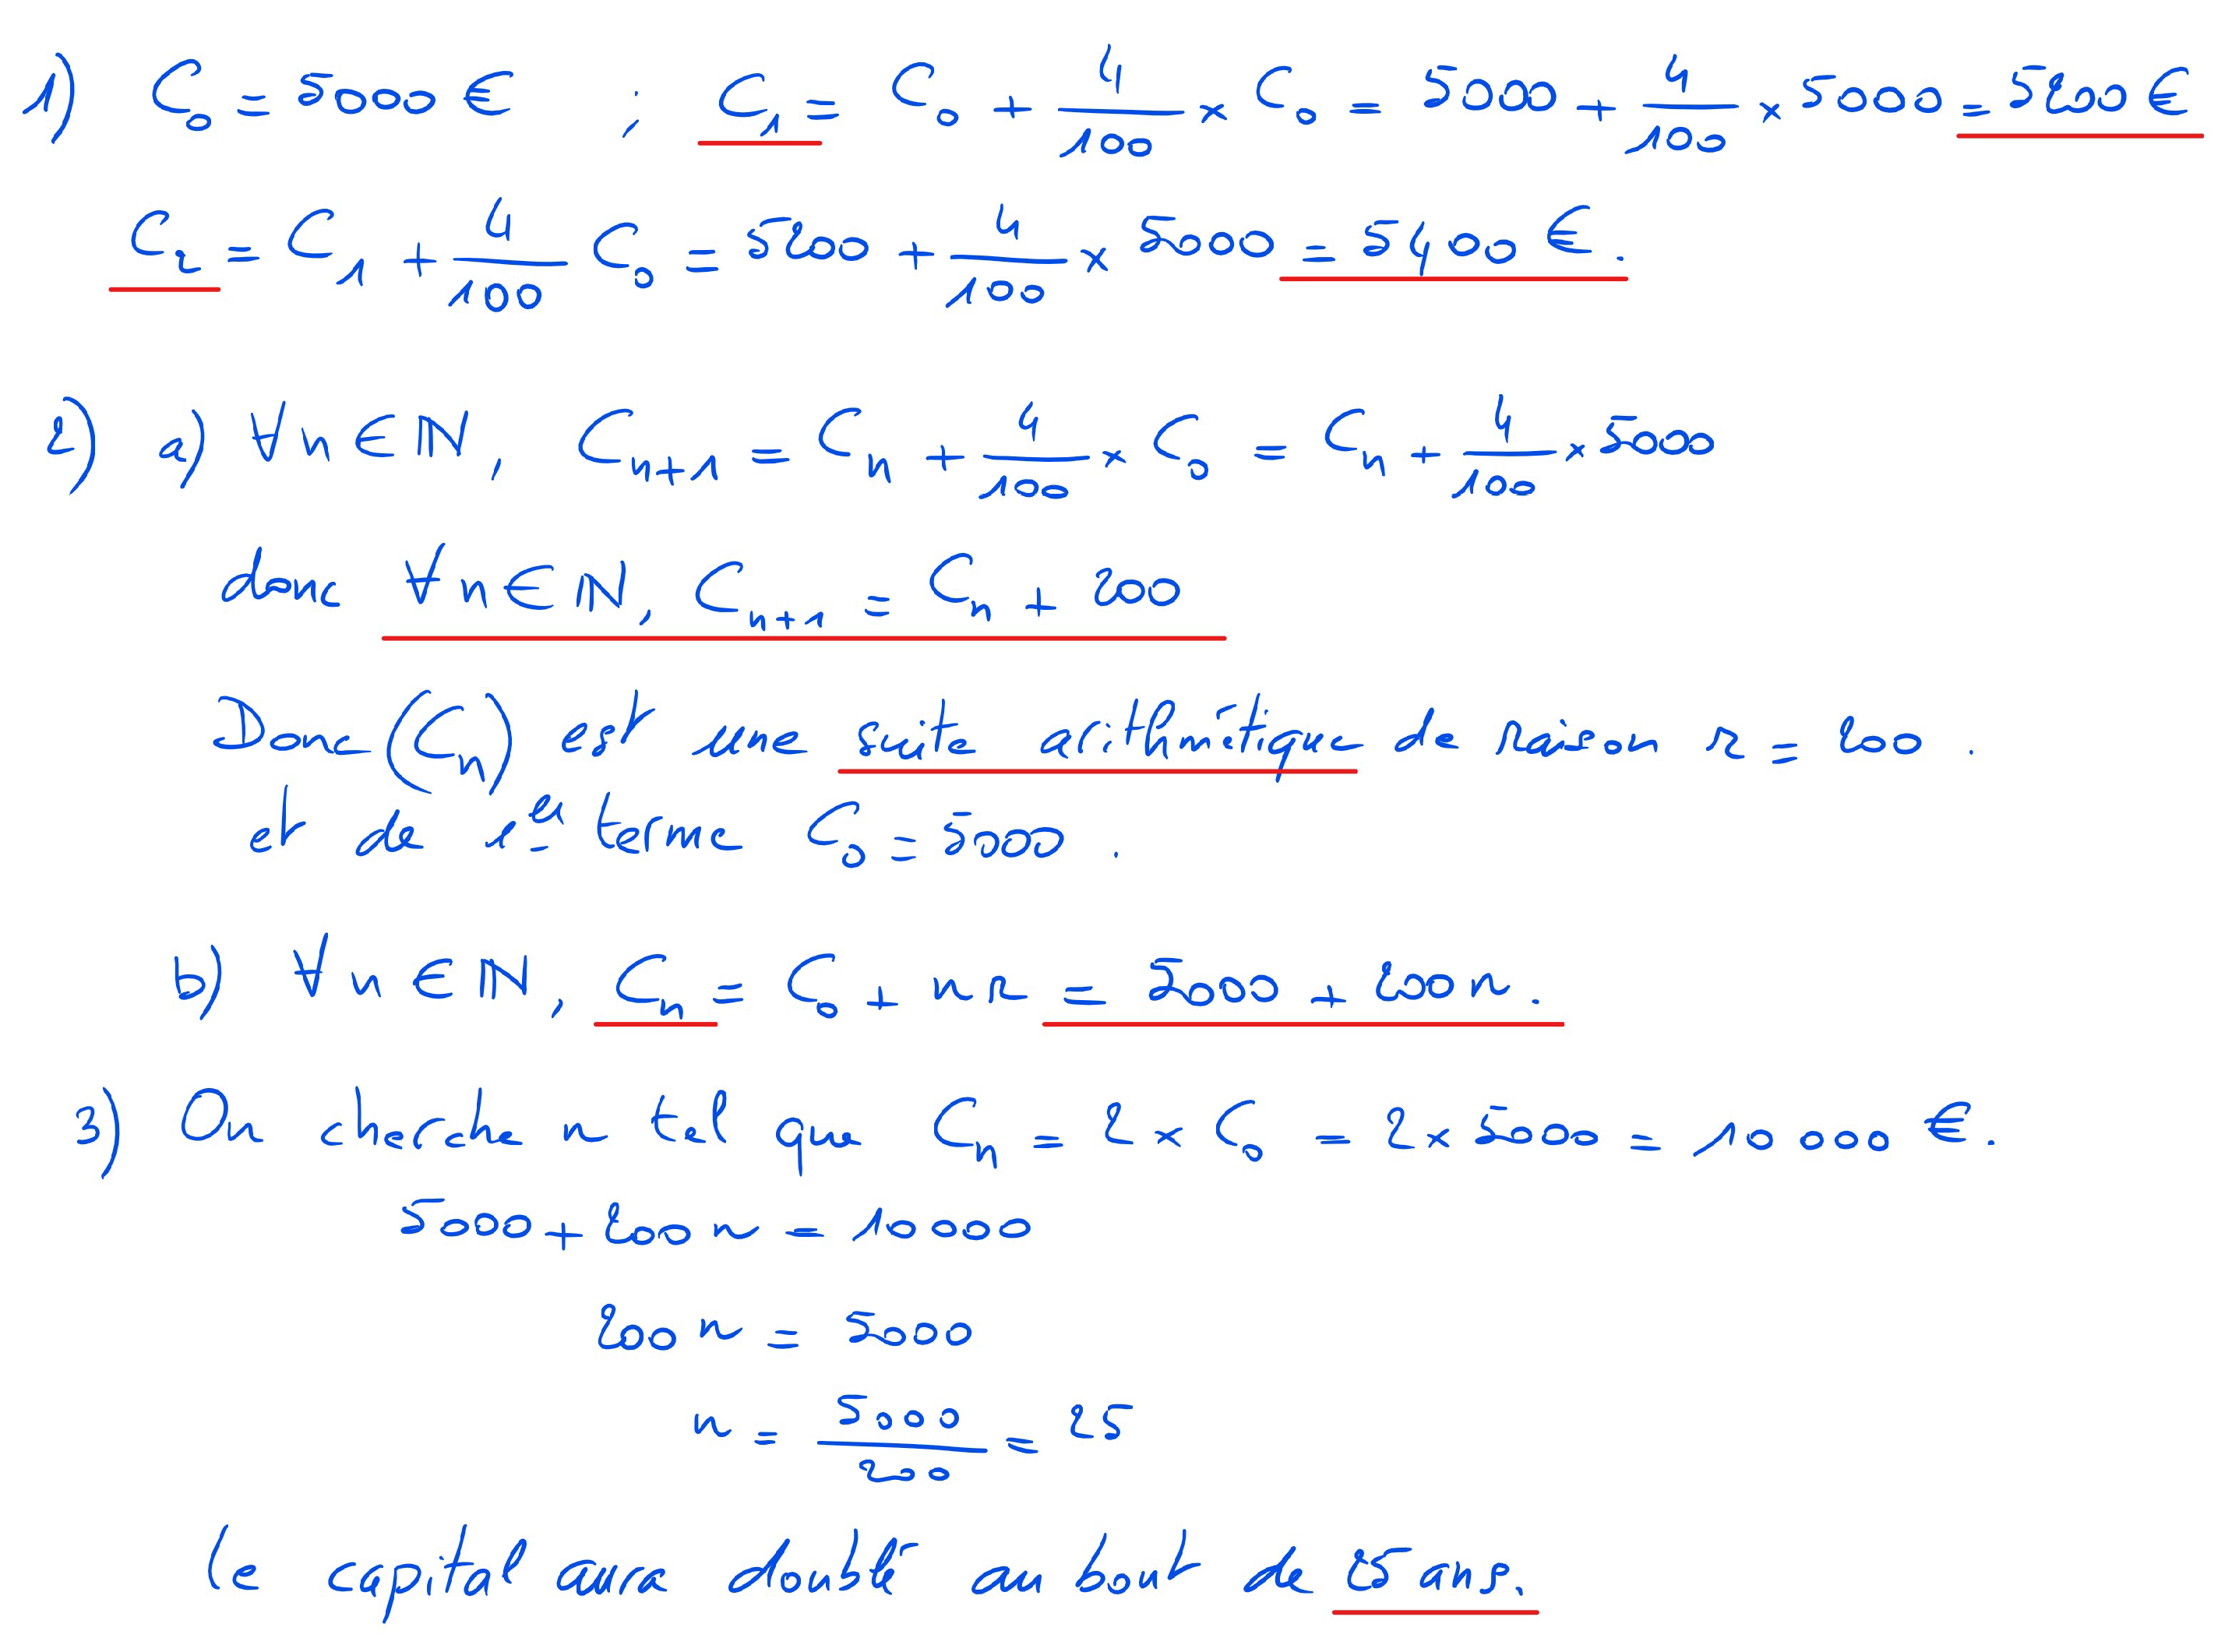 1) C₀ = 5000 € ; C₁ = C₀ + 4/100 × C₀ = 5000 + 4/100 × 5000 = 5200 €
C₂ = C₁ + 4/100 C₀ = 5200 + 4/100 × 5000 = 5400 € .
2) a) ∀n∈ℕ, Cₙ₊₁ = Cₙ + 4/100 × C₀ = Cₙ + 4/100 × 5000
donc ∀n∈ℕ, Cₙ₊₁ = Cₙ + 200
Donc (Cₙ) est une suite arithmétique de raison r = 200 .
et de 1er terme C₀ = 5000 .
b) ∀n∈ℕ, Cₙ = C₀ + nr = 5000 + 200n .
3) On cherche n tel que Cₙ = 2 × C₀ = 2 × 5000 = 10000 € .
5000 + 200n = 10000
200n = 5000
n = 5000/200 = 25
Le capital aura doublé au bout de 25 ans.